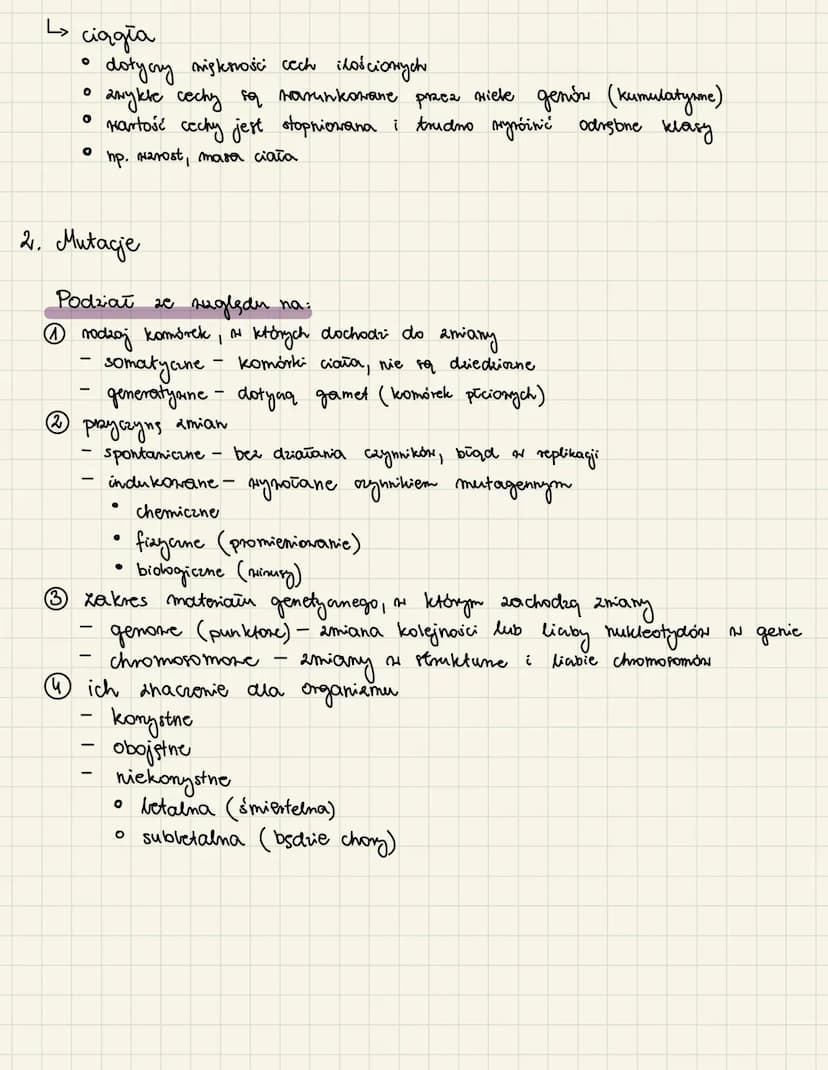 ↳ ciągła
◦ dotyczy większości cech ilościowych
◦ zwykle cechy są warunkowane przez wiele genów (kumulatywne)
◦ wartość cechy jest stopniowana i trudno wyróżnić odrębne klasy
◦ np. wzrost, masa ciała
2. Mutacje
Podział ze względu na:
① rodzaj komórek, w których dochodzi do zmiany
- somatyczne - komórki ciała, nie są dziedziczne
- generatywne - dotyczą gamet (komórek płciowych)
② przyczynę zmian
- spontaniczne - bez działania czynników, błąd w replikacji
- indukowane - wywołane czynnikiem mutagennym
• chemiczne
• fizyczne (promieniowanie)
• biologiczne (wirusy)
③ zakres materiału genetycznego, w którym zachodzą zmiany
- genowe (punktowe) - zmiana kolejności lub liczby nukleotydów w genie
- chromosomowe - zmiany w strukturze i liczbie chromosomów
④ ich znaczenie dla organizmu
- korzystne
- obojętne
- niekorzystne
◦ letalna (śmiertelna)
◦ subletalna (będzie chory)